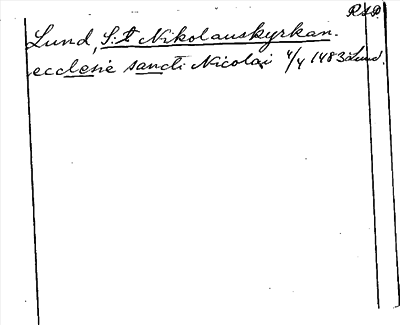 RAP.
Lund, S:t Nikolauskyrkan.
ecclesie sancti Nicolai 4/4 1483 Lund.